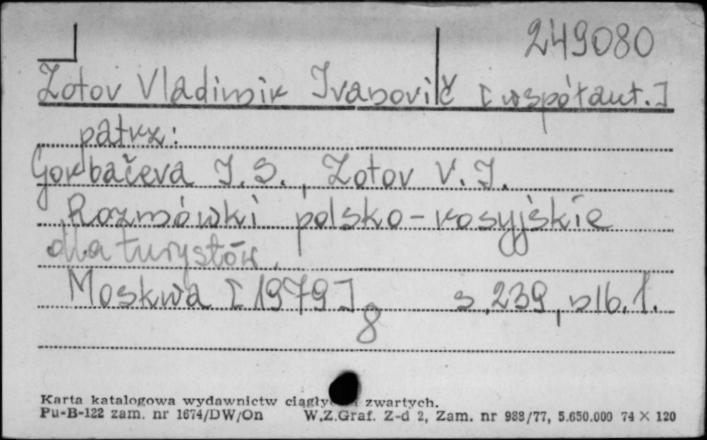 249080
Zotov Vladimir Ivanovič [współaut.]
patrz:
Gorbačeva I.S., Zotov V.I.
Rozmówki polsko-rosyjskie
dla turystów.
Moskwa [1979] s. 239, nlb. 1.
8
Karta katalogowa wydawnictw zwartych.
Pu-B-122 zam. nr 1674/DW/On W.Z.Graf. Z-d 2, Zam. nr 988/77, 5.650.000 74 × 120